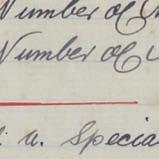 Number of
Number of
a Specia